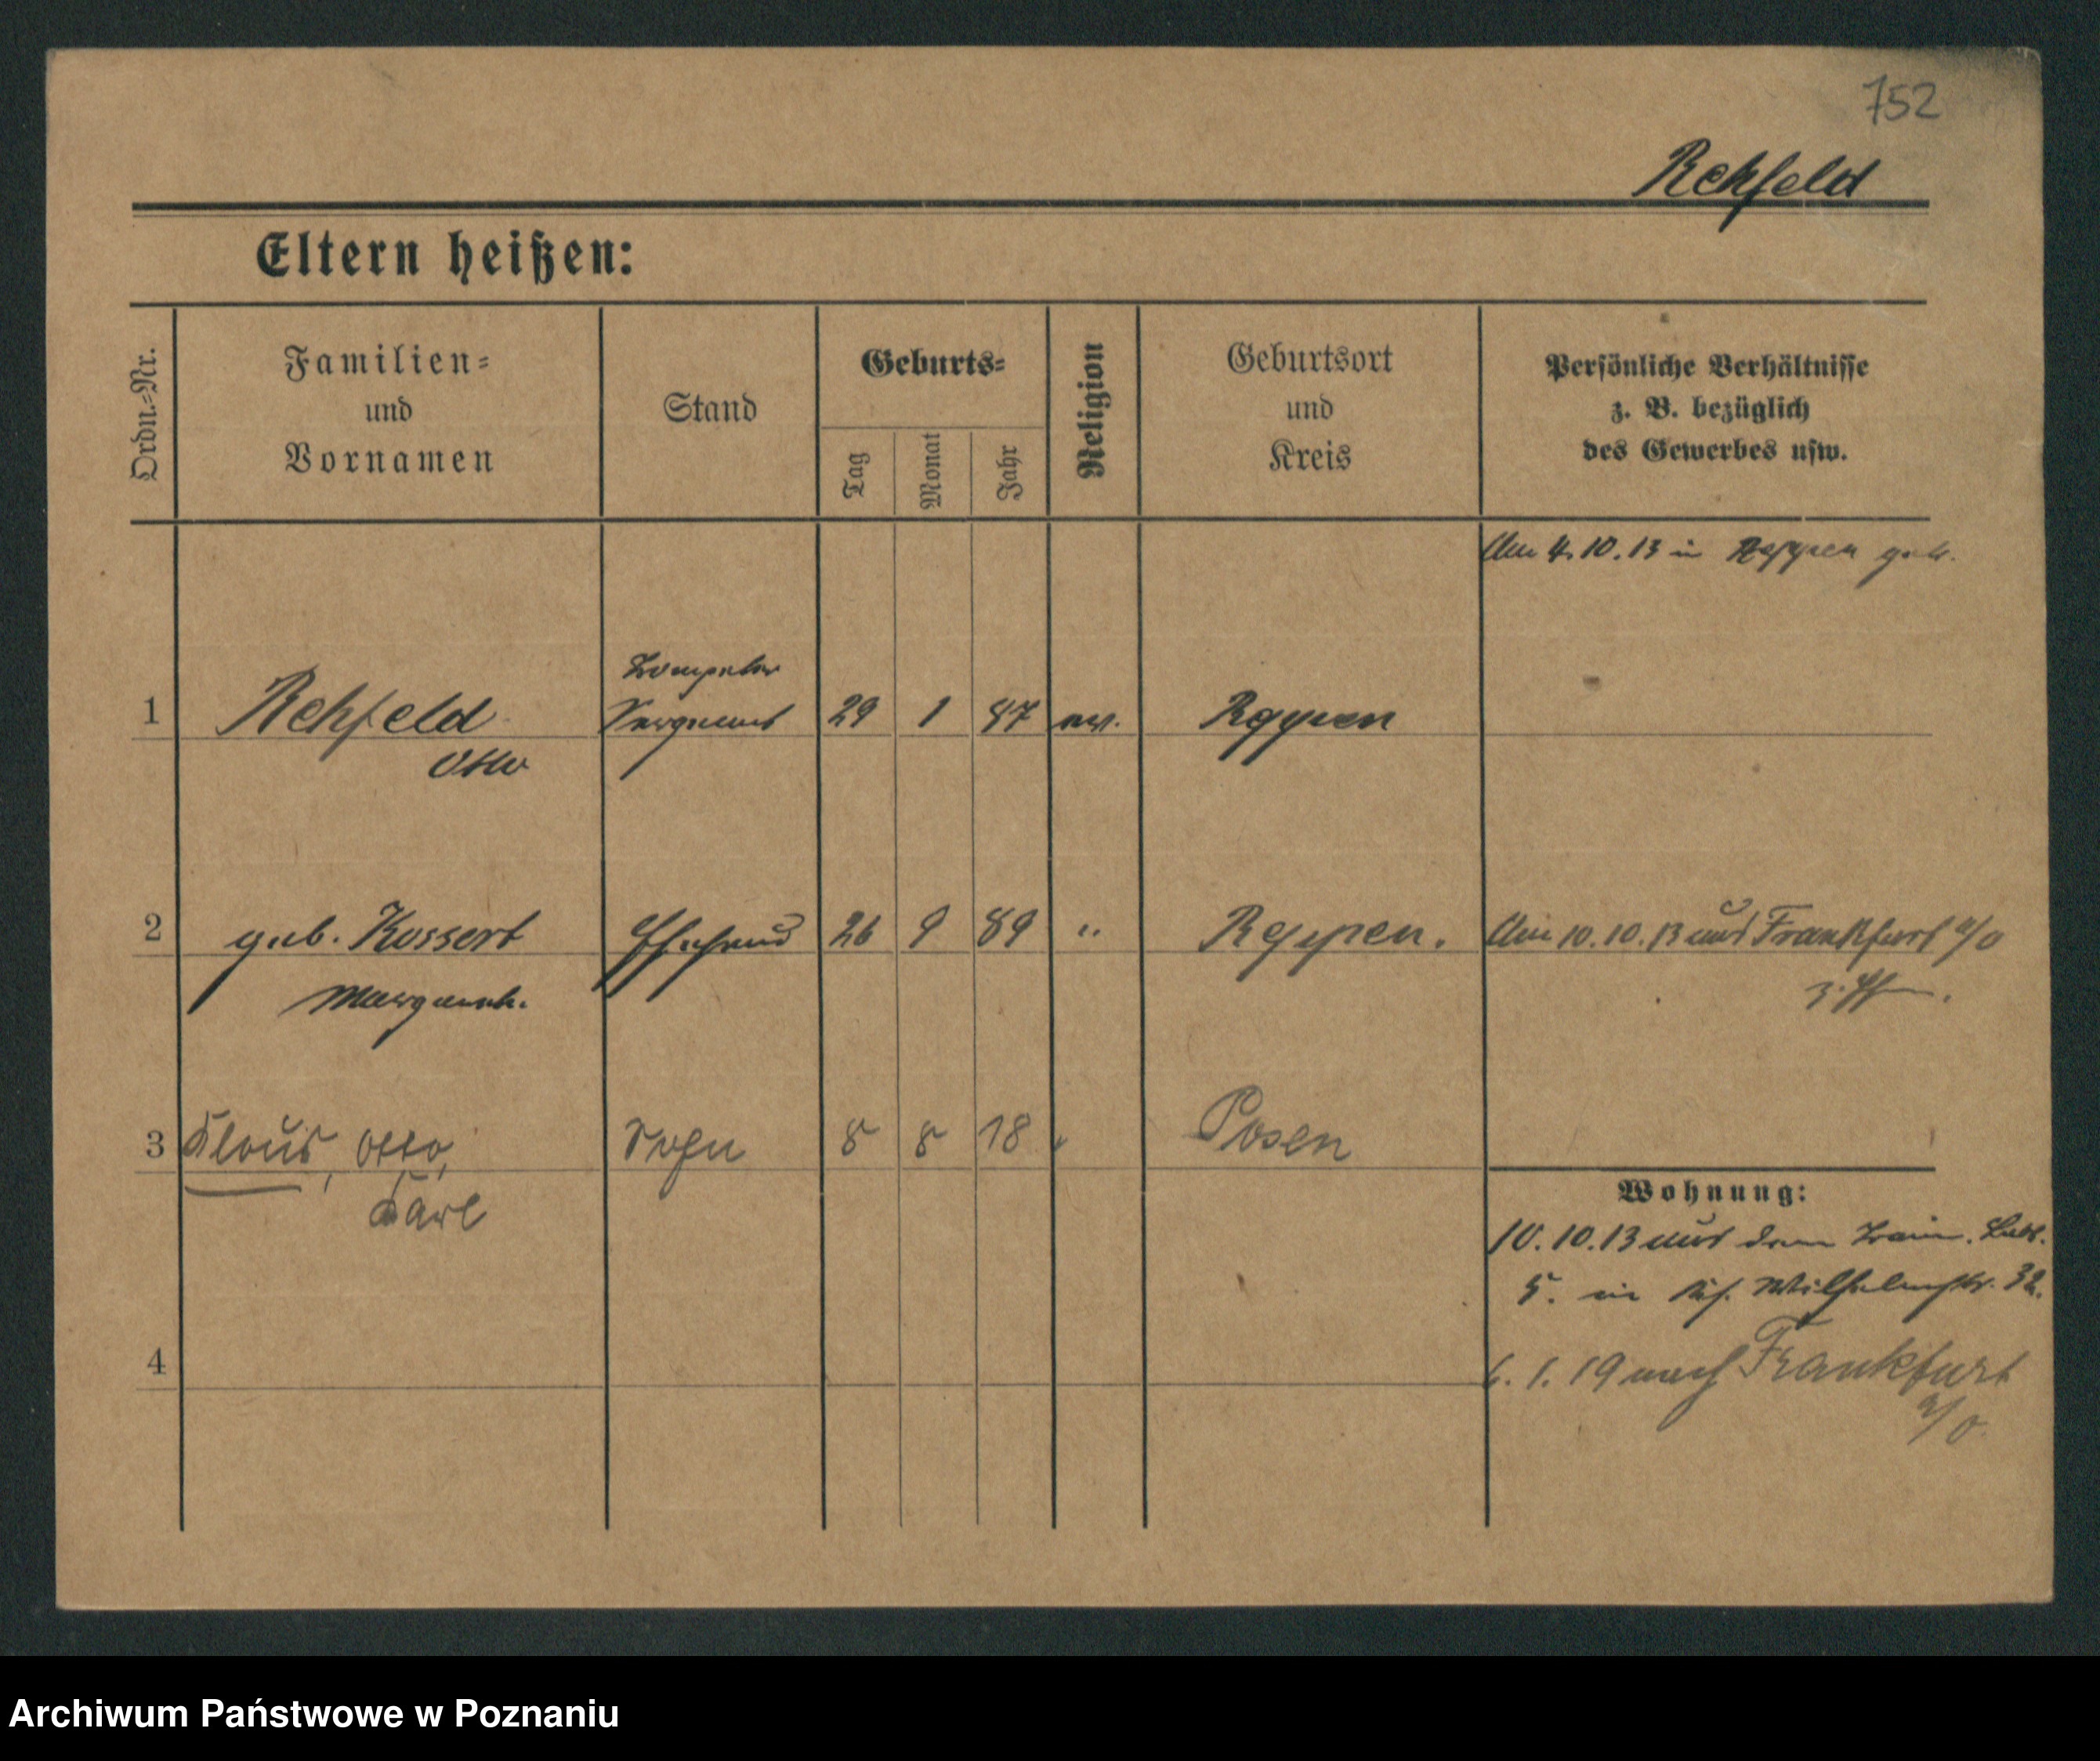 752
Rehfeld
Eltern heißen:
Ordn.=Nr.
Familien=
und
Vornamen
Stand
Geburts=
Tag
Monat
Jahr
Religion
Geburtsort
und
Kreis
Persönliche Verhältnisse
z. B. bezüglich
des Gewerbes usw.
Am 4.10.13 in Reppen geh.
1 Rehfeld Trompeter Sergeant 29 1 87 ev. Reppen
Otto
2 geb. Kossert Ehefrau 26 9 89 " Reppen. Am 10.10.13 aus Frankfurt a/O
Margareth.
3 Klaus, Otto, Sohn 8 8 18 " Posen
Karl
Wohnung:
10.10.13 aus dem Train. Batl.
5. in Wilhelmstr. 32.
4
6.1.19 nach Frankfurt
a/O
Archiwum Państwowe w Poznaniu